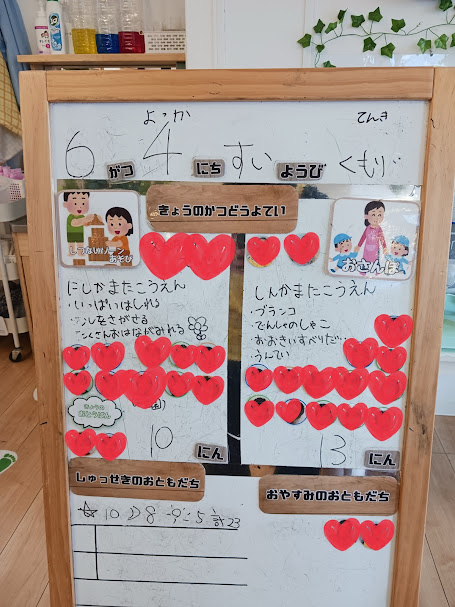 よっか
てんき
6 がつ 4 にち すい ようび くもり
きょうのかつどうよてい
あそび
おさんぽ
にしかまたこうえん
・いっぱいはしれる
をさがせる
さんおはながみれる
しんかまたこうえん
・ブランコ
・でんしゃのしゃこ
・おおきいすべりだ
うんてい
きょうの
おとうばん
10 にん
13 にん
しゅっせきのおともだち
おやすみのおともだち
10 8 5 計23